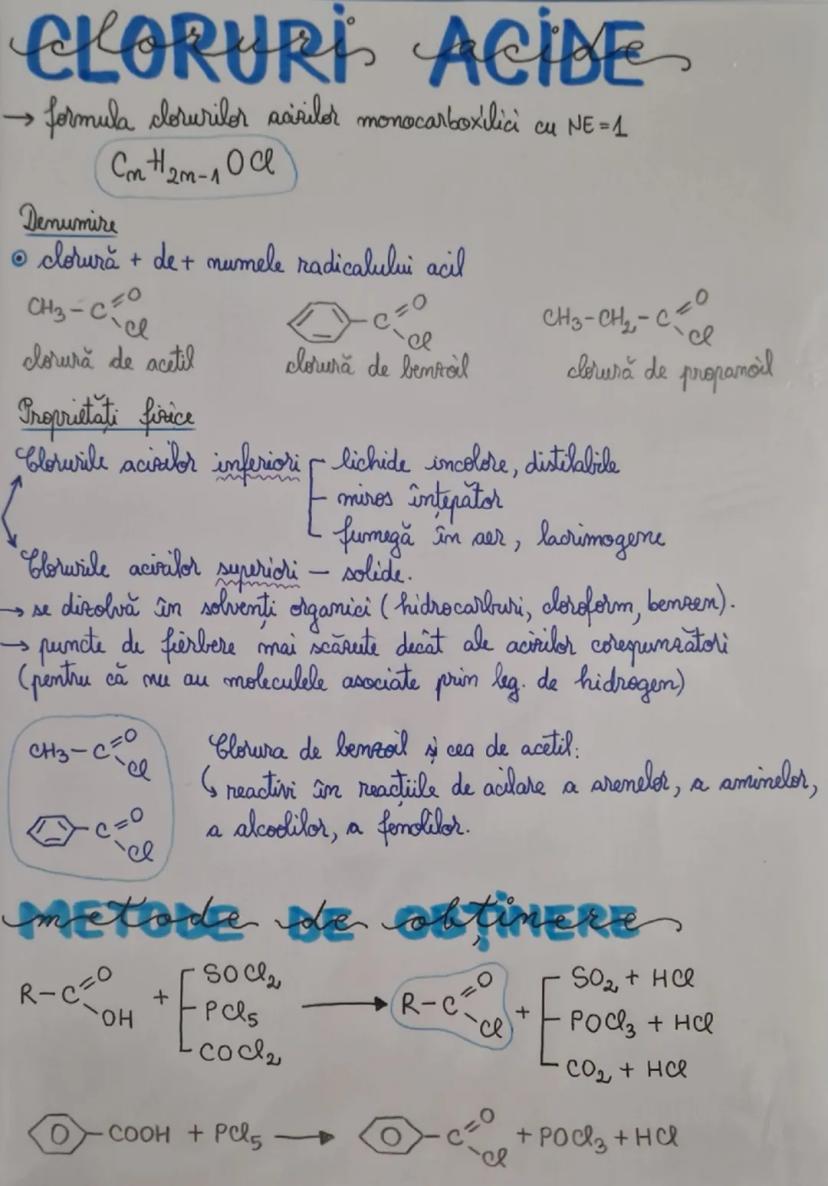 CLORURI ACIDE
cloruri acide
→ formula clorurilor acizilor monocarboxilici cu NE=1
CnH2n-1OCl
Denumire
clorură + de + numele radicalului acil
CH3-C=O Cl
C=O Cl
CH3-CH2-C=O Cl
clorură de acetil
clorură de benzoil
clorură de propanoil
Proprietăți fizice
Clorurile acizilor inferiori
lichide incolore, distilabile
miros înțepător
fumegă în aer, lacrimogene
Clorurile acizilor superiori — solide.
→ se dizolvă în solvenți organici (hidrocarburi, cloroform, benzen).
→ puncte de fierbere mai scăzute decât ale acizilor corespunzători
(pentru că nu au moleculele asociate prin leg. de hidrogen)
CH3-C=O Cl
C=O Cl
Clorura de benzoil și cea de acetil:
↳ reactivi în reacțiile de acilare a arenelor, a aminelor,
a alcoolilor, a fenolilor.
METODE DE OBȚINERE
metode de obținere
R-C=O OH + SOCl2 PCl5 COCl2 → R-C=O Cl + SO2 + HCl POCl3 + HCl CO2 + HCl
COOH + PCl5 → C=O Cl + POCl3 + HCl